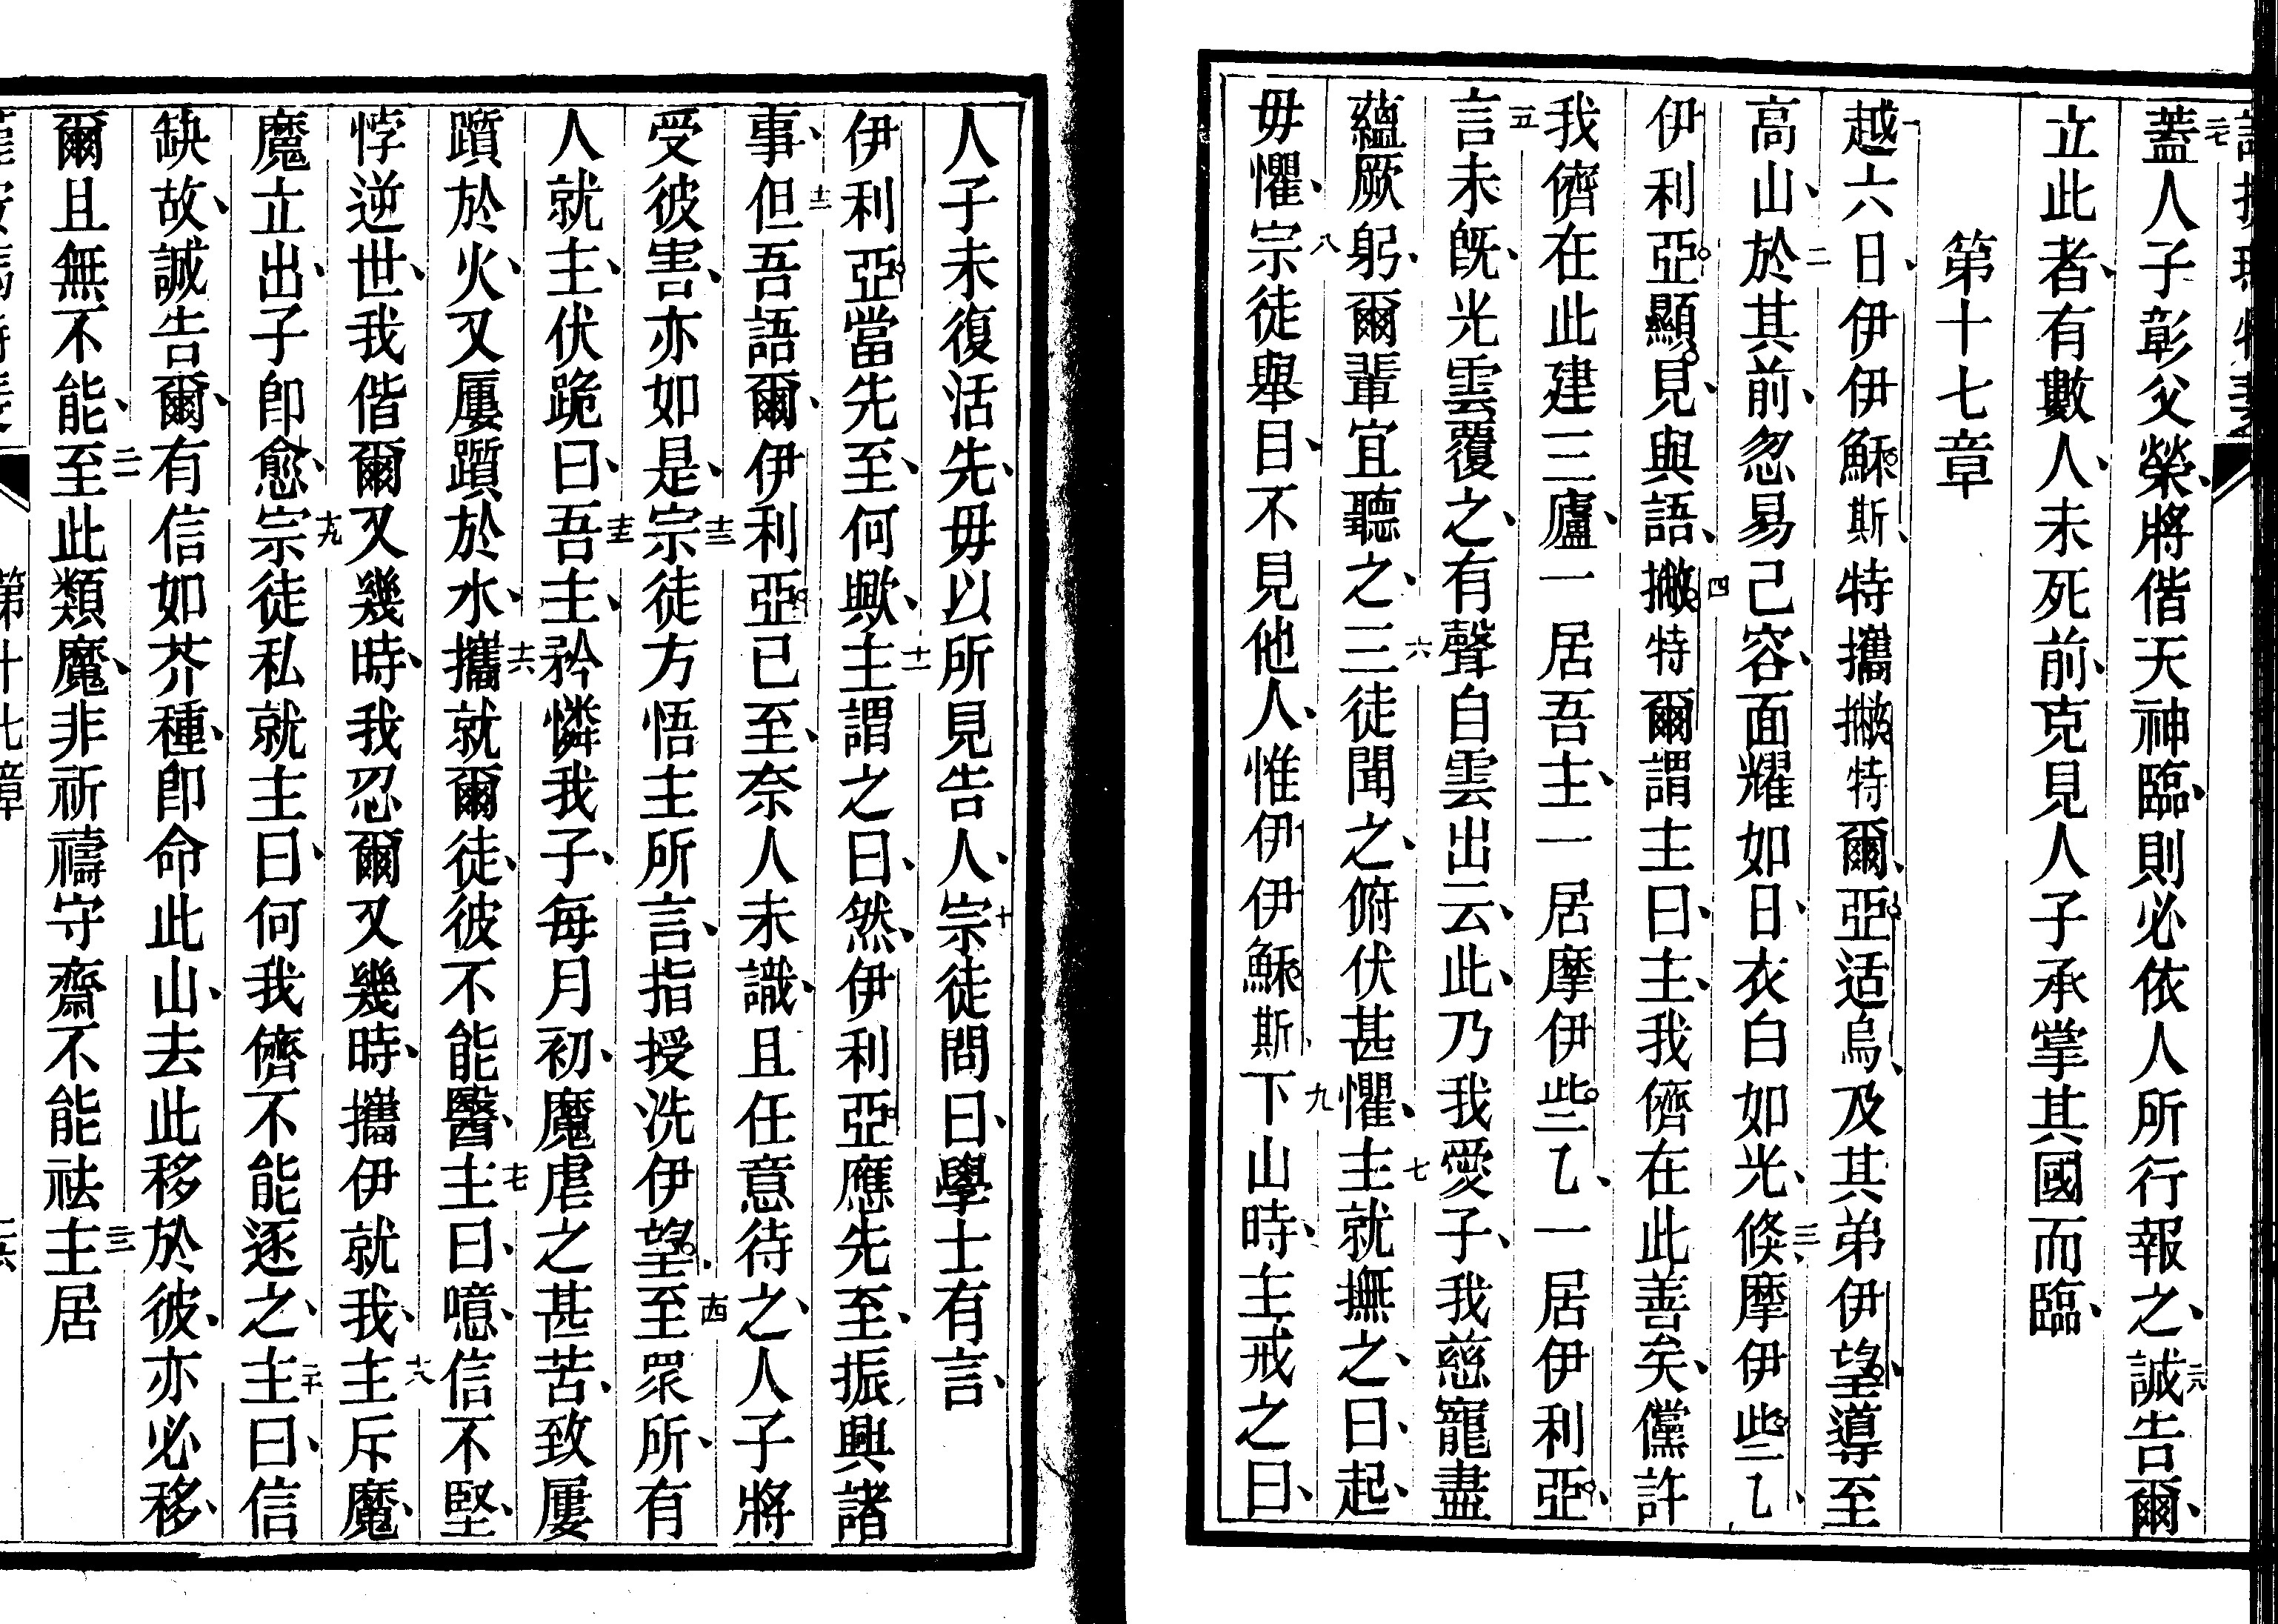 蓋人子彰父榮、將偕天神臨、則必依人所行報之、誠告爾、
立此者、有數人、未死前、克見人子承掌其國而臨、
第十七章
越六日、伊伊穌斯、特攜撇特爾、亞适烏、及其弟伊望、導至
高山、於其前、忽易己容、面耀如日、衣白如光、倐摩伊些乙、
伊利亞顯見、與語、撇特爾謂主曰、主、我儕在此善矣、儻許
我儕在此建三廬、一居吾主、一居摩伊些乙、一居伊利亞、
言未既、光雲覆之、有聲自雲出云、此、乃我愛子、我慈寵盡
蘊厥躬、爾輩宜聽之、三徒聞之、俯伏甚懼、主就撫之、曰、起、
毋懼、宗徒舉目、不見他人、惟伊伊穌斯、下山時、主戒之曰、
人子未復活先、毋以所見告人、宗徒問曰、學士有言、
伊利亞當先至、何歟、主謂之曰、然、伊利亞應先至、振興諸
事、但吾語爾、伊利亞已至、奈人未識、且任意待之、人子將
受彼害、亦如是、宗徒方悟主所言、指授洗伊望、至眾所、有
人就主、伏跪曰、吾主、矜憐我子、每月初、魔虐之甚苦、致屢
躓於火、又屢躓於水、攜就爾徒、彼不能醫、主曰、噫、信不堅、
悖逆世、我偕爾又幾時、我忍爾又幾時、攜伊就我、主斥魔、
魔立出、子卽愈、宗徒私就主曰、何我儕不能逐之、主曰、信
缺故、誠告爾、有信如芥種、卽命此山、去此移於彼、亦必移、
爾且無不能、至此類魔、非祈禱守齋不能祛、主居